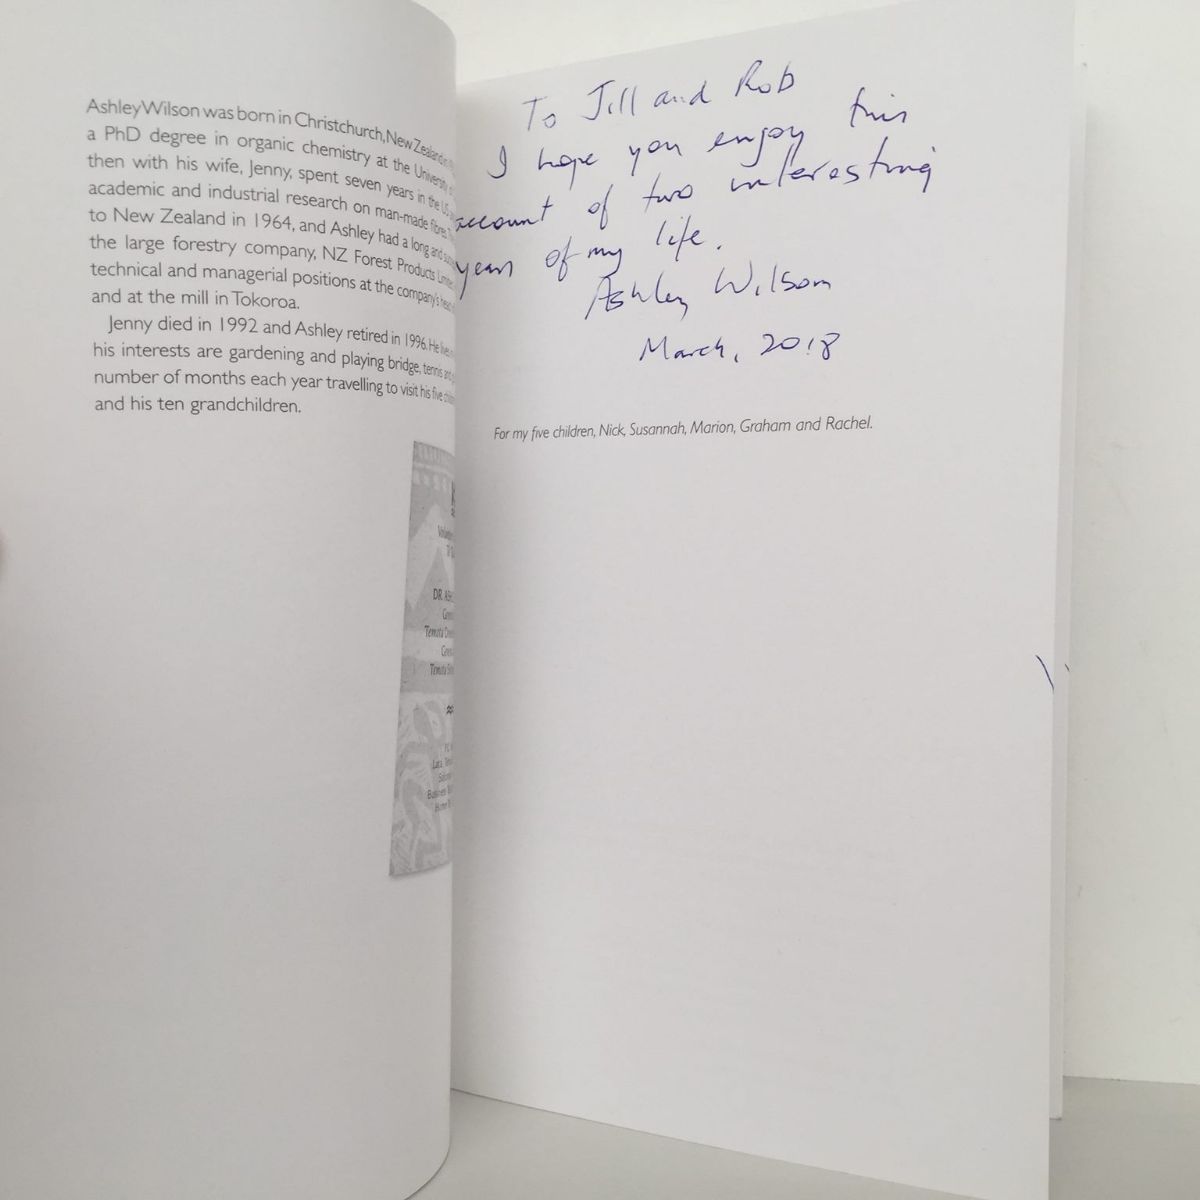 Ashley Wilson was born in Christchurch, New Zealand in
a PhD degree in organic chemistry at the University
then with his wife, Jenny, spent seven years in the US
academic and industrial research on man-made fibres.
to New Zealand in 1964, and Ashley had a long and
the large forestry company, NZ Forest Products
technical and managerial positions at the company's
and at the mill in Tokoroa.
Jenny died in 1992 and Ashley retired in 1996. He lives
his interests are gardening and playing bridge, tennis and
number of months each year travelling to visit his five
and his ten grandchildren.
DR. ASH
To Jill and Rob
I hope you enjoy this
account of two interesting
years of my life.
Ashley Wilson
March, 2018
For my five children, Nick, Susannah, Marion, Graham and Rachel.